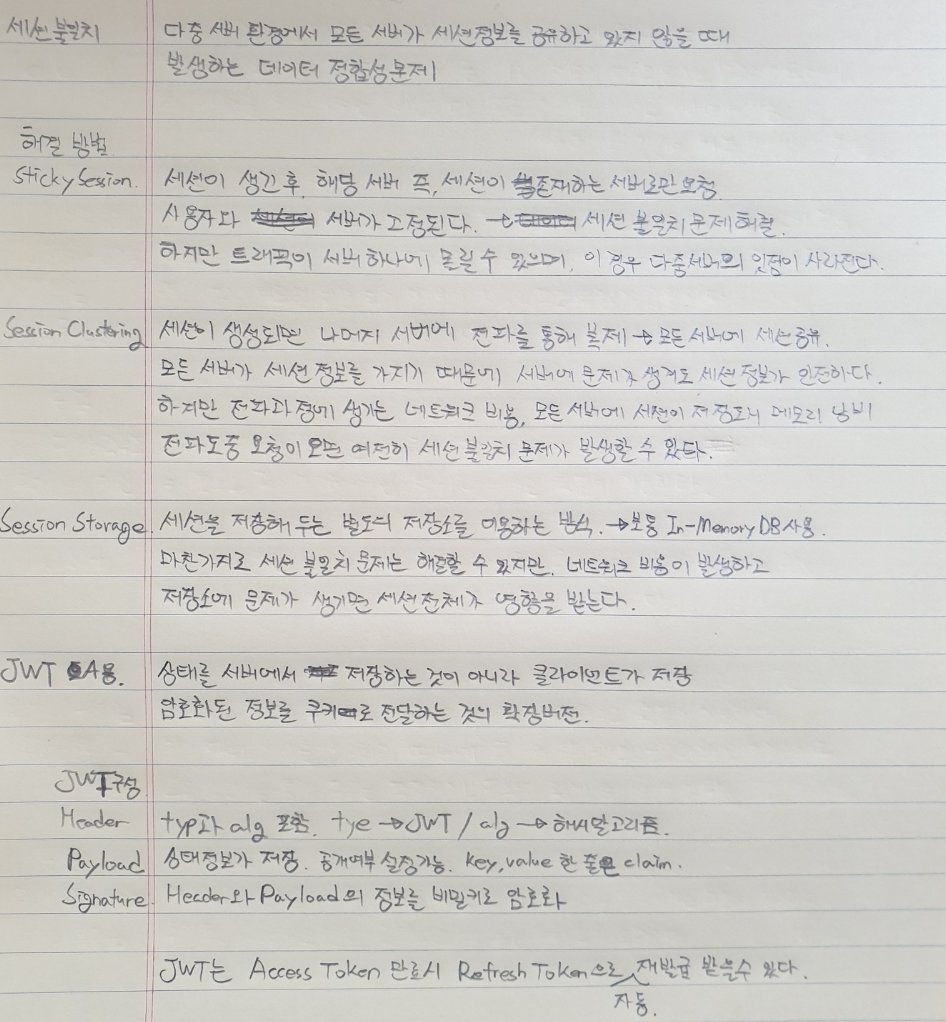 세션불일치 다중 서버 환경에서 모든 서버가 세션정보를 공유하고 있지 않을 때
발생하는 데이터 정합성문제
해결 방법
Sticky Session. 세션이 생긴 후, 해당 서버 즉, 세션이 존재하는 서버로만 요청
사용자와 서버가 고정된다. 세션 불일치 문제 해결.
하지만 트래픽이 서버 하나에 몰릴 수 있으며, 이 경우 다중서버의 이점이 사라진다.
Session Clustering 세션이 생성되면 나머지 서버에 전파를 통해 복제 → 모든 서버에 세션 공유.
모든 서버가 세션 정보를 가지기 때문에 서버에 문제가 생겨도 세션 정보가 안전하다.
하지만 전파과정에 생기는 네트워크 비용, 모든 서버에 세션이 저장되니 메모리 낭비
전파도중 요청이 오면 여전히 세션 불일치 문제가 발생할 수 있다.
Session Storage. 세션을 저장해 두는 별도의 저장소를 이용하는 방식. → 보통 In-Memory DB 사용.
마찬가지로 세션 불일치 문제는 해결할 수 있지만, 네트워크 비용이 발생하고
저장소에 문제가 생기면 세션 전체가 영향을 받는다.
JWT 사용. 상태를 서버에서 저장하는 것이 아니라 클라이언트가 저장
암호화된 정보를 쿠키로 전달하는 것의 확장버전.
JWT구성
Header typ과 alg 포함. tye → JWT / alg → 해시알고리즘.
Payload 상태정보가 저장. 공개여부 설정가능. key, value 한 줄은 claim.
Signature. Header와 Payload의 정보를 비밀키로 암호화
JWT는 Access Token 만료시 Refresh Token으로 재발급 받을수 있다.
자동.